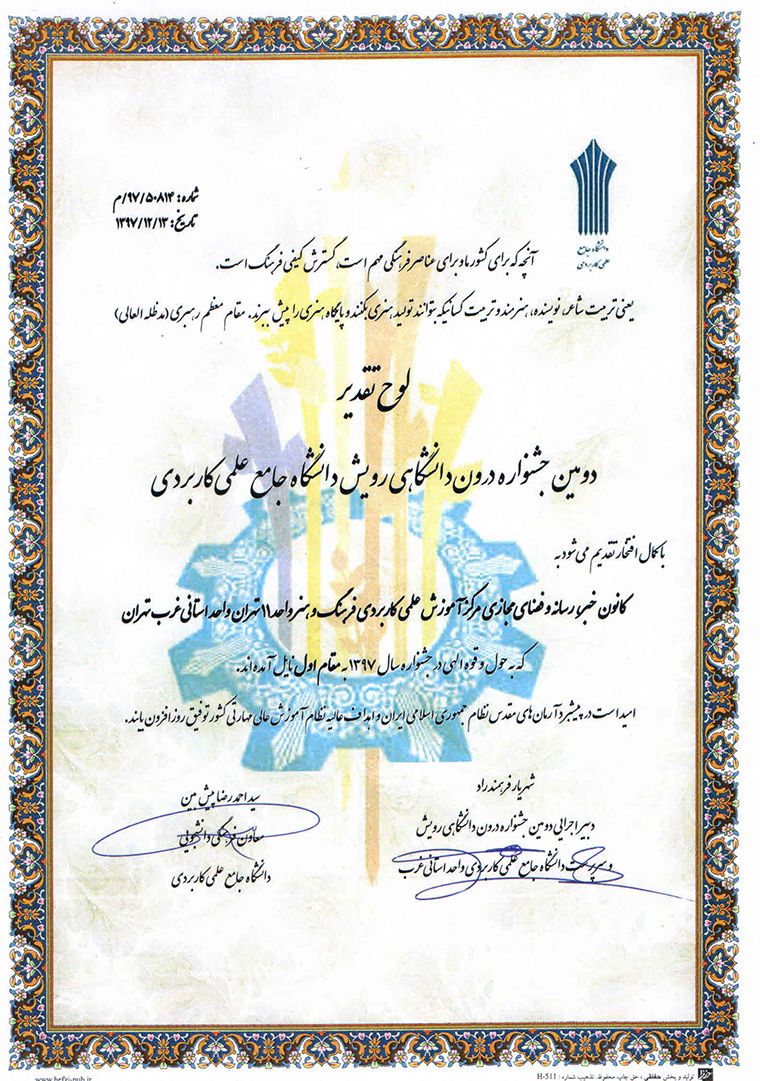 شماره: ۹۷/۵۰۸۱۴/م
تاریخ: ۱۳۹۷/۱۲/۱۳
دانشگاه جامع
علمی کاربردی
آنچه که برای کشور ما و برای عناصر فرهنگی مهم است، گسترش کیفی فرهنگ است.
یعنی تربیت شاعر، نویسنده، هنرمند و تربیت کسانیکه بتوانند تولید هنری بکنند و پایگاه هنری را پیش ببرند. مقام معظم رهبری (مدظله العالی)
لوح تقدیر
دومین جشنواره درون دانشگاهی رویش دانشگاه جامع علمی کاربردی
با کمال افتخار تقدیم می‌شود به
کانون خبر، رسانه و فضای مجازی مرکز آموزش علمی کاربردی فرهنگ و هنر واحد ۱۱ تهران واحد استانی غرب تهران
که به حول و قوه الهی در جشنواره سال ۱۳۹۷ به مقام اول نایل آمده‌اند.
امید است در پیشبرد آرمان های مقدس نظام جمهوری اسلامی ایران و اهداف عالیه نظام آموزش عالی مهارتی کشور توفیق روز افزون یابند.
شهریار فرهمند راد
دبیر اجرایی دومین جشنواره درون دانشگاهی رویش
و سرپرست دانشگاه جامع علمی کاربردی واحد استانی غرب
سید احمد رضا پیش بین
معاون فرهنگی دانشجویی
دانشگاه جامع علمی کاربردی
تولید و پخش حفظی ، حق چاپ محفوظ. تذهیب شماره : H-511
www.hefzi-pub.ir